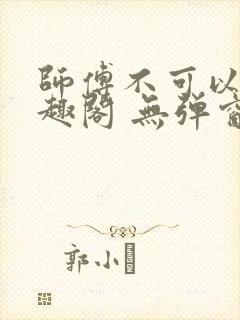 師傅不可以
趣閣 無彈窗
郭小